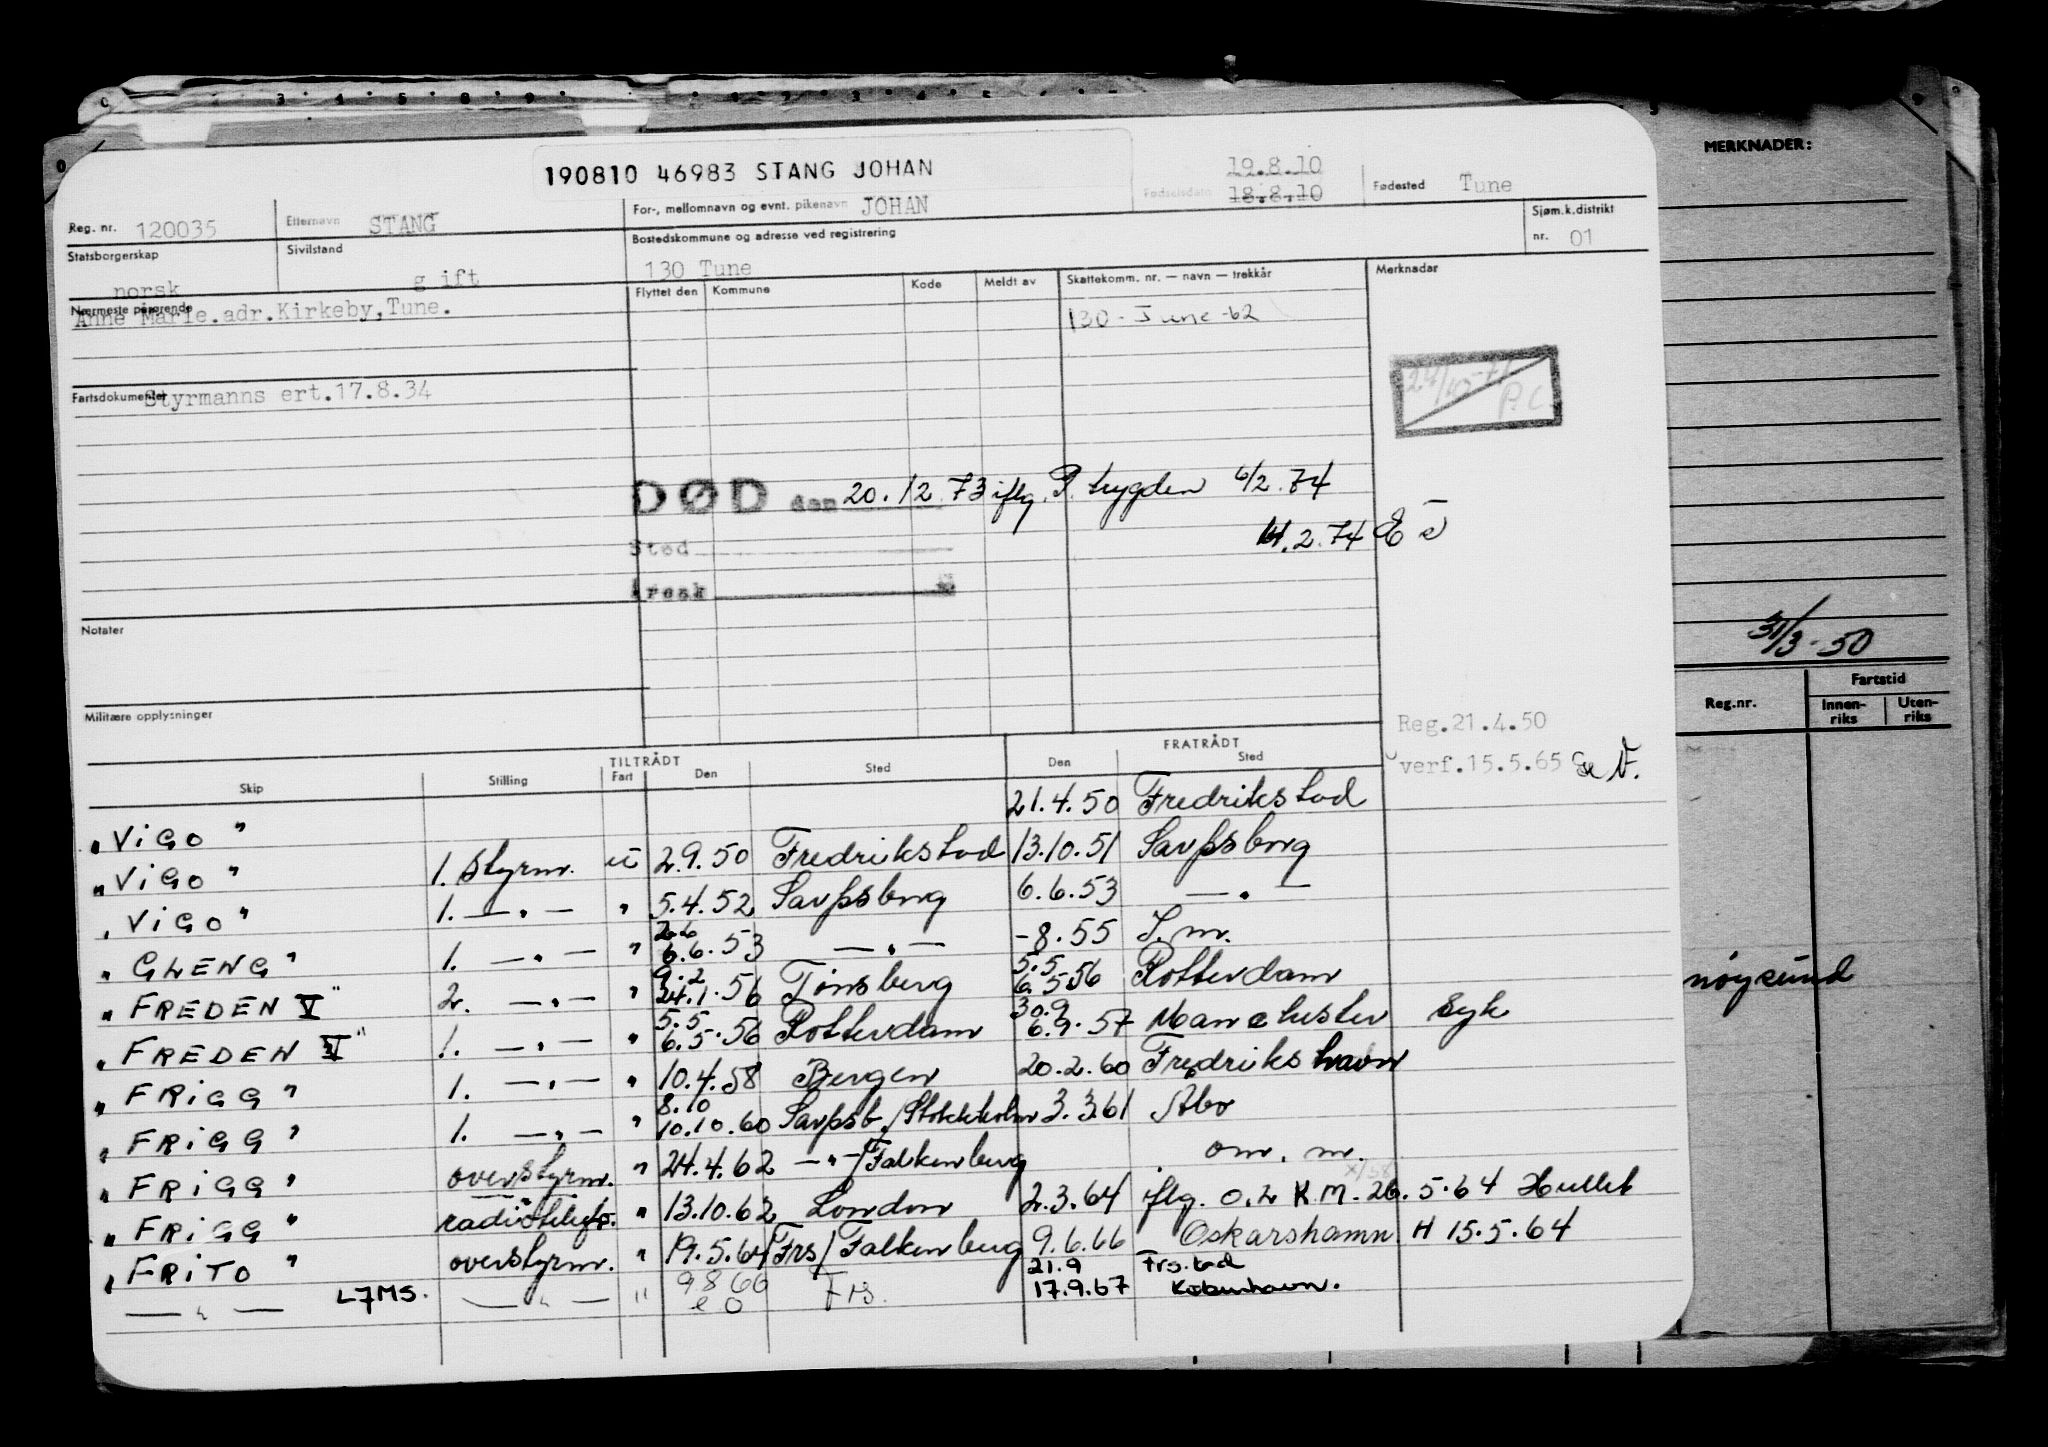 190810 46983 STANG JOHAN
Reg. nr. 120035 Etternavn STANG For-, mellomnavn og evnt. pikenavn JOHAN Fødselsdato 19.8.10 18.8.10 Fødested Tune
Statsborgerskap norsk Sivilstand gift Bostedskommune og adresse ved registrering 130 Tune Sjøm.k.distrikt nr. 01
Nærmeste pårørende Anne Marie.adr.Kirkeby,Tune.
Flyttet den Kommune Kode Meldt av Skattekomm. nr. — navn — trekkår Merknader
130 - Tune -62
Fartsdokumenter Styrmanns ert.17.8.34
DØD den 20.12.73 iflg. P. trygden 6/2.74
Sted 14.2.74
Årsak
Notater
Militære opplysninger
Reg.21.4.50
verf.15.5.65
TILTRÅDT FRATRÅDT
Skip Stilling Fart Den Sted Den Sted
"ViGO" 21.4.50 Fredrikstad
"ViGO" 1. styrm. u 2.9.50 Fredrikstad 13.10.51 Sarpsborg
"ViGO" 1. — " — " 5.4.52 Sarpsborg 6.6.53 — " —
"GLENG" 1. — " — " 26 6.6.53 — " — -8.55 S.m.
"FREDEN V" 2. — " — " 9.2 24.1.56 Tønsberg 5.5 6.5.56 Rotterdam
"FREDEN V" 1. — " — " 5.5 6.5.56 Rotterdam 30.9 6.9.57 Manchester syk
"FRiGG" 1. — " — " 10.4.58 Bergen 20.2.60 Fredrikshavn
"FRiGG" 1. — " — " 8.10 10.10.60 Sarpsb./Stockholm 3.3.61 Åbo
"FRiGG" overstyrm. " 24.4.62 — " —/Falkenberg om. m.
"FRiGG" radiotelefo. " 13.10.62 London 2.3.64 iflg. O.L K.M. 26.5.64 Hullet
"FRiTO" overstyrm. " 19.5.64 Frs/Falkenberg 9.6.66 Oskarshamn H 15.5.64
— " — L7MS. — " — " 9 8 66 Frs. 21.9 17.9.67 Frs.tad København.
MERKNADER:
31/3-50
Reg.nr. Fartstid
Innen-riks Uten-riks